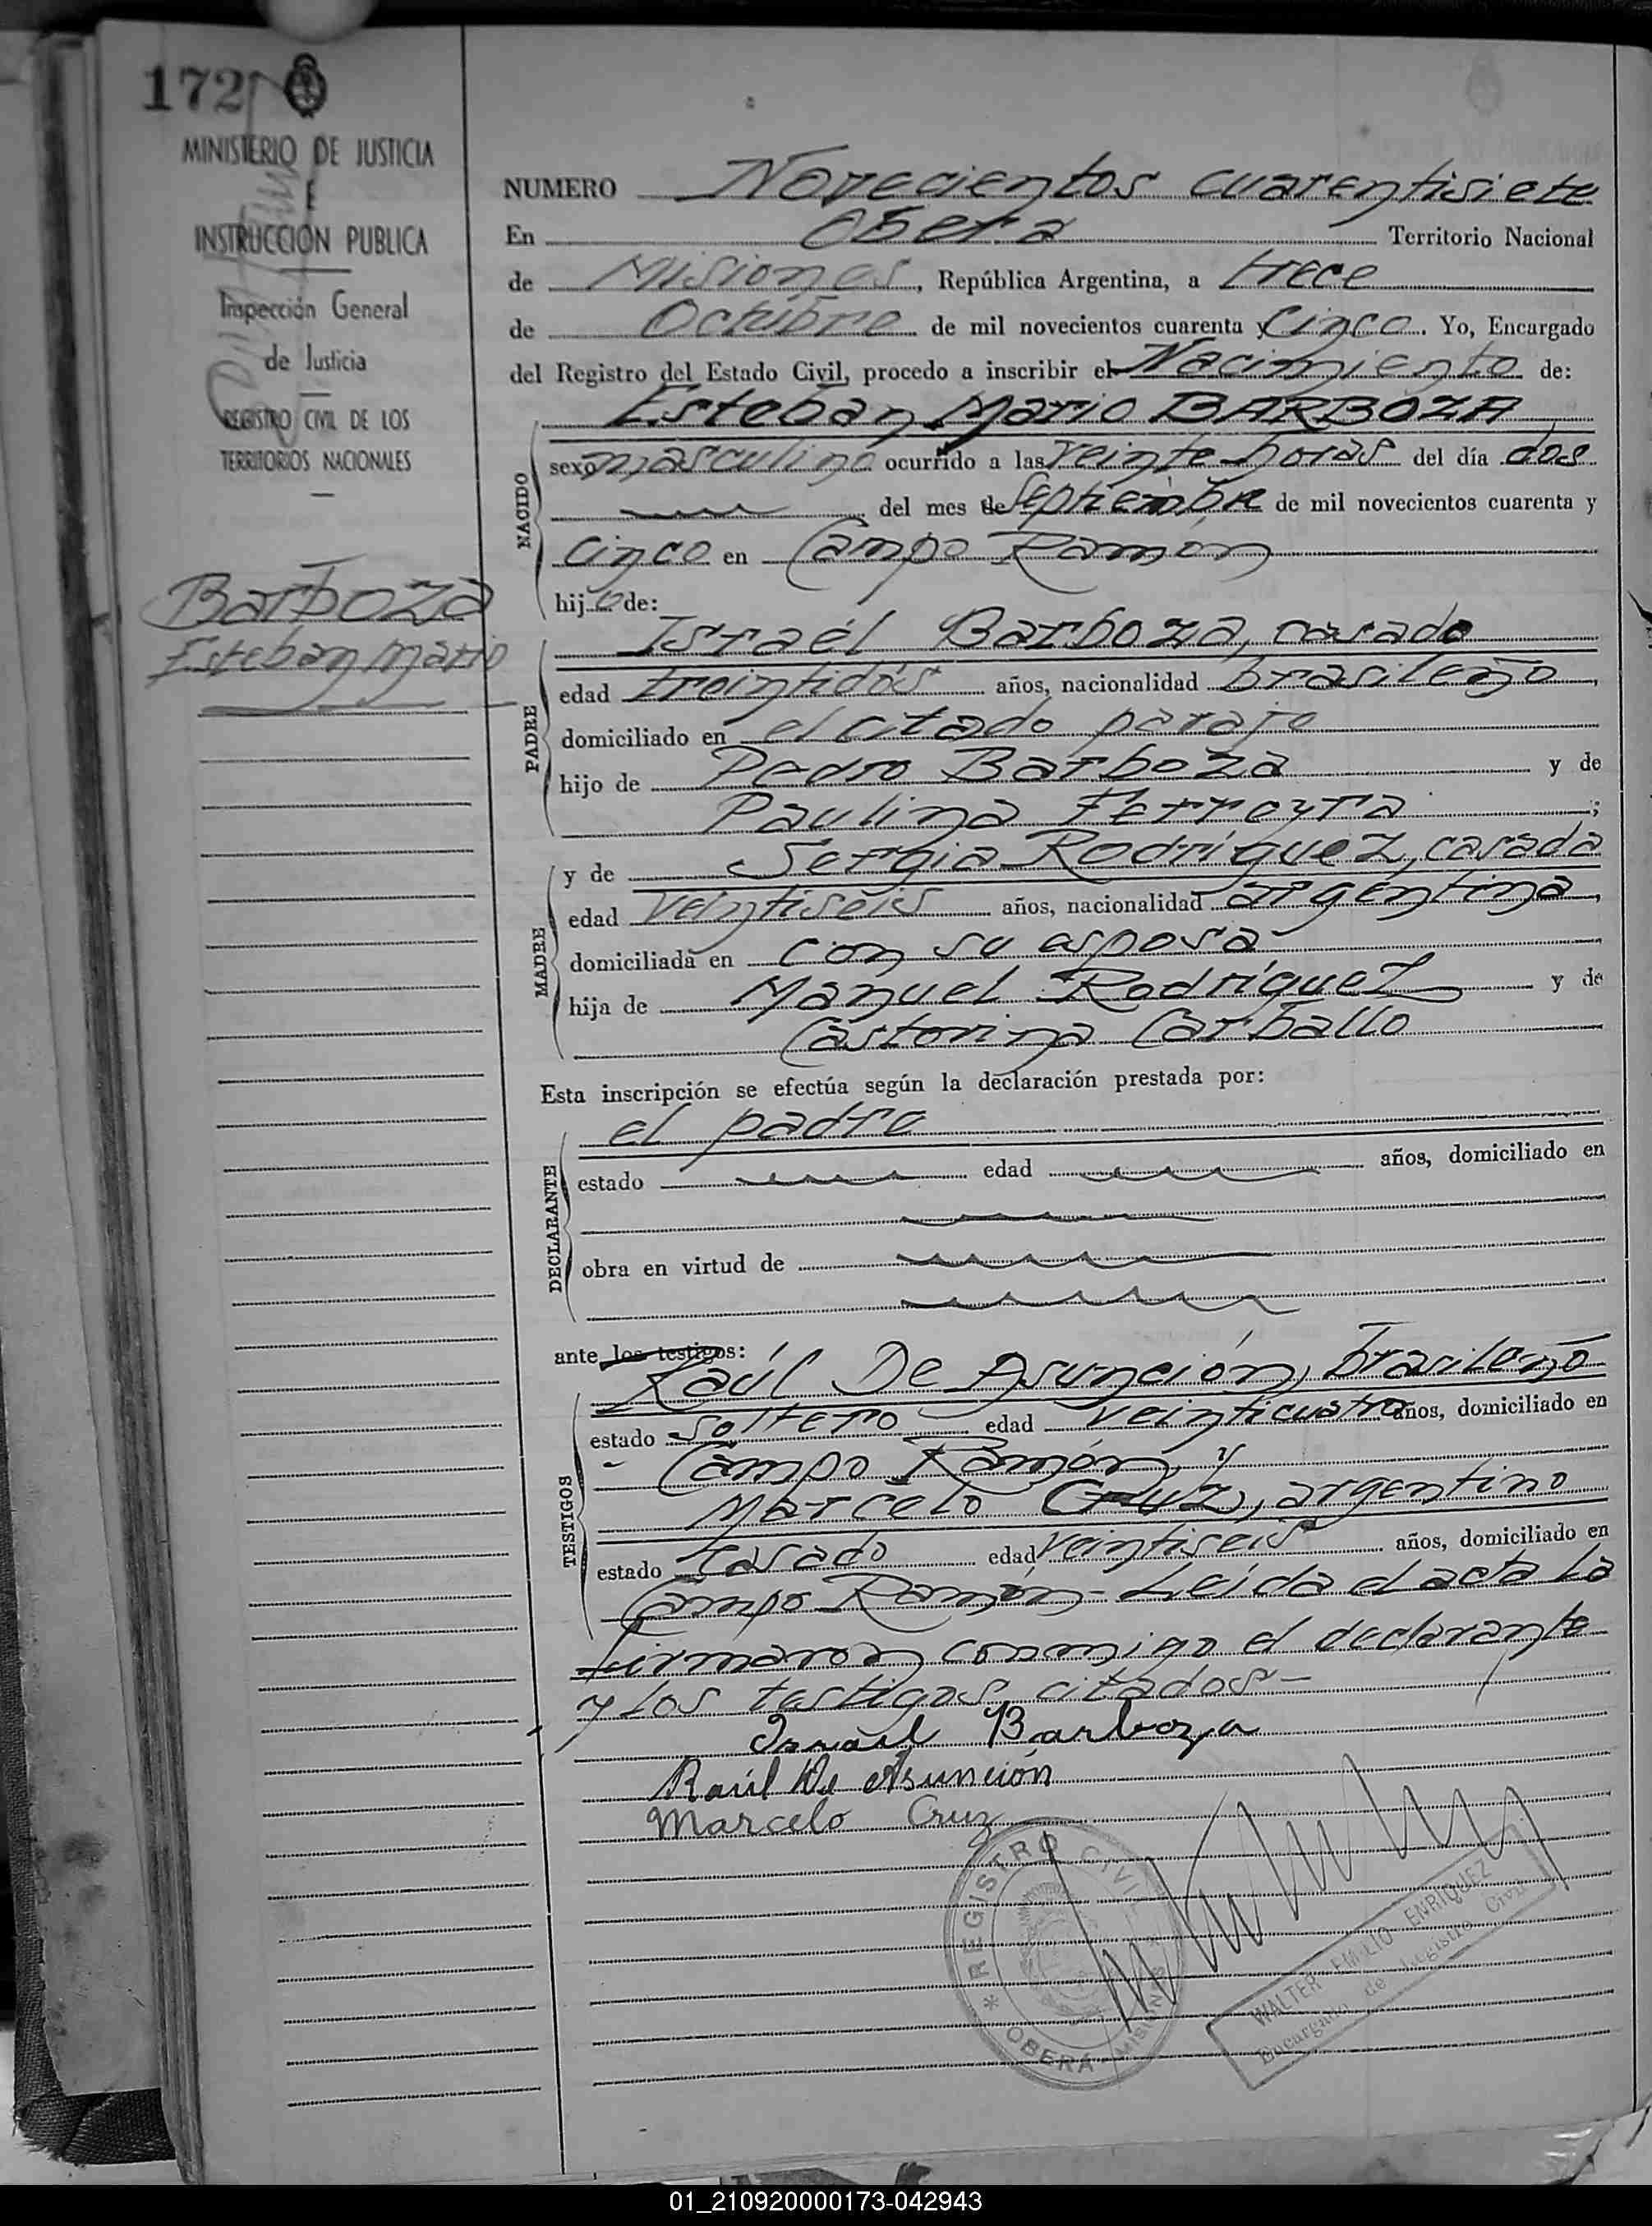 172
MINISTERIO DE JUSTICIA
E
INSTRUCCION PUBLICA
Inspección General
de Justicia
REGISTRO CIVIL DE LOS
TERRITORIOS NACIONALES
Barboza
Esteban Mario
NUMERO Novecientos cuarentisiete
En Oberá Territorio Nacional
de Misiones, República Argentina, a trece
de Octubre de mil novecientos cuarenta y cinco. Yo, Encargado
del Registro del Estado Civil, procedo a inscribir el Nacimiento de:
Esteban Mario BARBOZA
NACIDO
sexo masculino ocurrido a las veinte horas del día dos
del mes de Septiembre de mil novecientos cuarenta y
cinco en Campo Ramón
hijo de:
PADRE
Israél Barboza, casado
edad treintidós años, nacionalidad brasileño,
domiciliado en el citado paraje
hijo de Pedro Barboza y de
Paulina Ferreyra;
MADRE
y de Sergia Rodríguez, casada
edad veintiséis años, nacionalidad argentina,
domiciliada en con su esposo
hija de Manuel Rodríguez y de
Castorina Carballo
Esta inscripción se efectúa según la declaración prestada por:
DECLARANTE
el padre
estado edad años, domiciliado en
obra en virtud de
ante los testigos:
TESTIGOS
Raúl De Asunción, brasileño
estado soltero edad veinticuatro años, domiciliado en
Campo Ramón, y
Marcelo Cruz, argentino
estado casado edad veintiseis años, domiciliado en
Campo Ramón - Leída el acta la
firmaron conmigo el declarante
y los testigos citados-
Israel Barboza
Raúl De Asunción
Marcelo Cruz
* REGISTRO CIVIL *
OBERÁ - MISIONES
WALTER EMILIO ENRIQUEZ
Encargado de Registro Civil
01_210920000173-042943